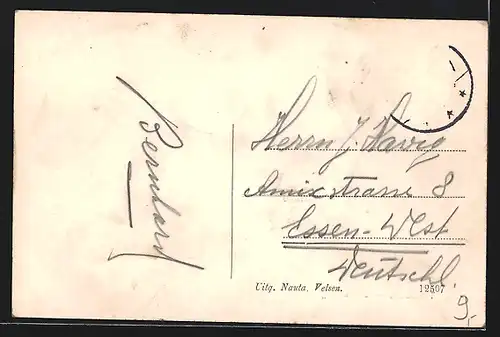 Bernhard
Herrn J. Havig
Amixstrasse 8
Essen-West
Deutschl.
Uitg. Nauta, Velsen.
12507
9,-